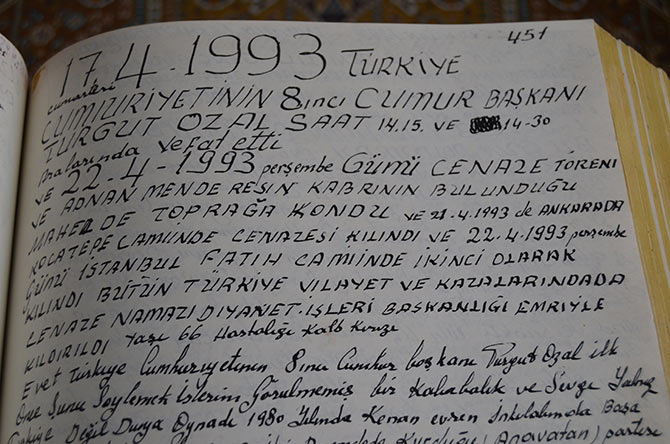 451
17.4.1993 TÜRKİYE
cumartesi
CUMHURİYETİNİN 8inci CUMUR BAŞKANI
TURGUT ÖZAL SAAT 14.15. VE 14-30
Aralarında vefat etti
VE 22.4-1993 perşembe GÜMÜ CENAZE TÖRENİ
VE ADNAN MENDERESİN KABRININ BULUNDUĞU
MAHELDE TOPRAĞA KONDU VE 21.4.1993 de ANKARADA
KOCATEPE CAMİNDE CENAZESİ KILINDI VE 22.4.1993 perşembe
GÜMÜ İSTANBUL FATİH CAMİNDE İKİNCİ OLARAK
KILINDI BÜTÜN TÜRKİYE VİLAYET VE KAZALARINDADA
CENAZE NAMAZI DİYANET.İŞLERİ BAŞKANLIĞI EMRİYLE
KILDIRILDI Yaşı 66 Hastalığı Kalb Krize
Evet Türkiye Cumhuriyetinin 8inci Cumhur başkanı Turgut Özal ilk
Öne Şunu Söylemek İsterim Görülmemiş bir Kalabalık ve Sevgi Yalnız
Değil Dünya Oynadı 1980 Yılında Kenan evren İnkılabında Başa
Kurduğu (Anavatan) partisi